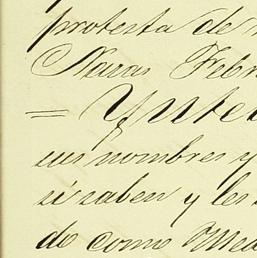 protesta de
Naras Febr
= Ynte
sus nombres y
si saben y les
do como Med